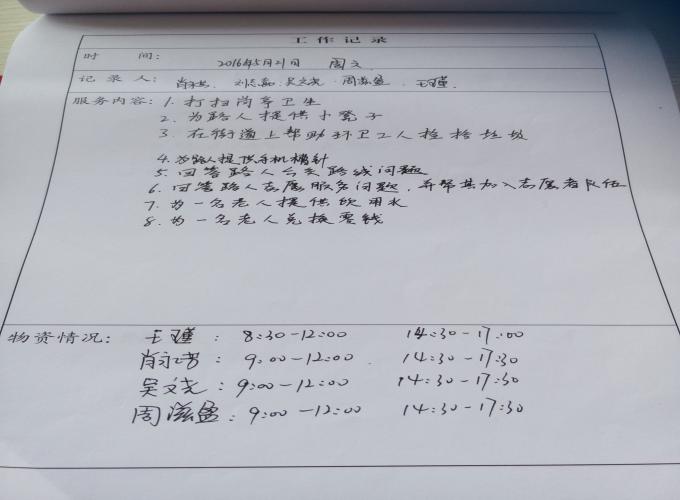 工作记录
时 间: 2016年5月21日 周六
记录人: 肖 刘志 吴文尧 周滋盈 王瑾
服务内容: 1. 打扫岗亭卫生
2. 为路人提供小凳子
3. 在街道上帮助环卫工人捡拾垃圾
4. 为路人提供手机插针
5. 回答路人公交路线问题
6. 回答路人志愿服务问题,并帮其加入志愿者队伍
7. 为一名老人提供饮用水
8. 为一名老人兑换零钱
物资情况: 王瑾: 8:30-12:00 14:30-17:00
肖: 9:00-12:00 14:30-17:30
吴文尧: 9:00-12:00 14:30-17:30
周滋盈: 9:00-12:00 14:30-17:30